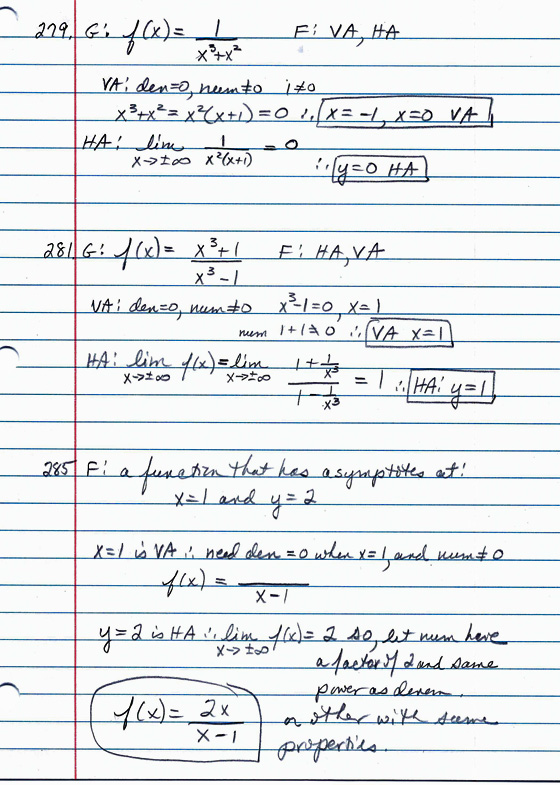 279. G: f(x) = 1/(x³+x²) F: VA, HA
VA: den=0, num≠0 1≠0
x³+x² = x²(x+1) = 0 ∴ x = -1, x=0 VA
HA: lim x→±∞ 1/(x²(x+1)) = 0
∴ y=0 HA
281. G: f(x) = (x³+1)/(x³-1) F: HA, VA
VA: den=0, num≠0 x³-1=0, x=1
num 1+1≠0 ∴ VA x=1
HA: lim x→±∞ f(x) = lim x→±∞ (1 + 1/x³)/(1 - 1/x³) = 1 ∴ HA: y=1
285 F: a function that has asymptotes at:
x=1 and y=2
x=1 is VA ∴ need den=0 when x=1, and num≠0
f(x) = /(x-1)
y=2 is HA ∴ lim x→±∞ f(x) = 2 so, let num have
a factor of 2 and same
power as denom.
f(x) = 2x/(x-1)
or other with same
properties.